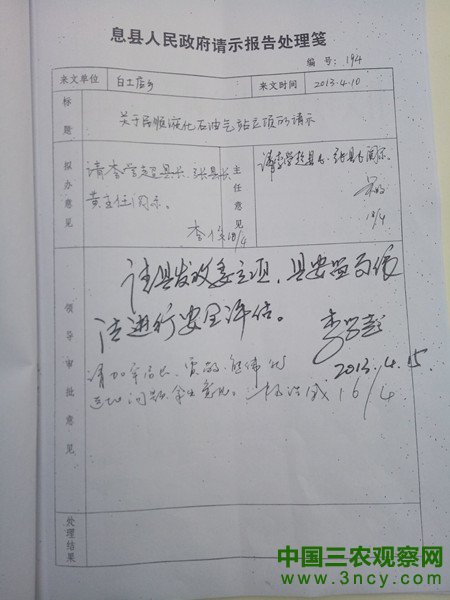 息县人民政府请示报告处理笺
编 号：194
来文单位 白土店乡 来文时间 2013.4.10
标题 关于民顺液化石油气站立项的请示
拟办意见 请李学超县长、张县长
黄主任阅示。
李 18/4
主任意见 请李学超县长、张县长阅示。
18/4
领导审批意见 请县发改委立项，县安监局依
法进行安全评估。
李学超
2013.4.15
16/4
处理结果
中国三农观察网
www.3ncy.com